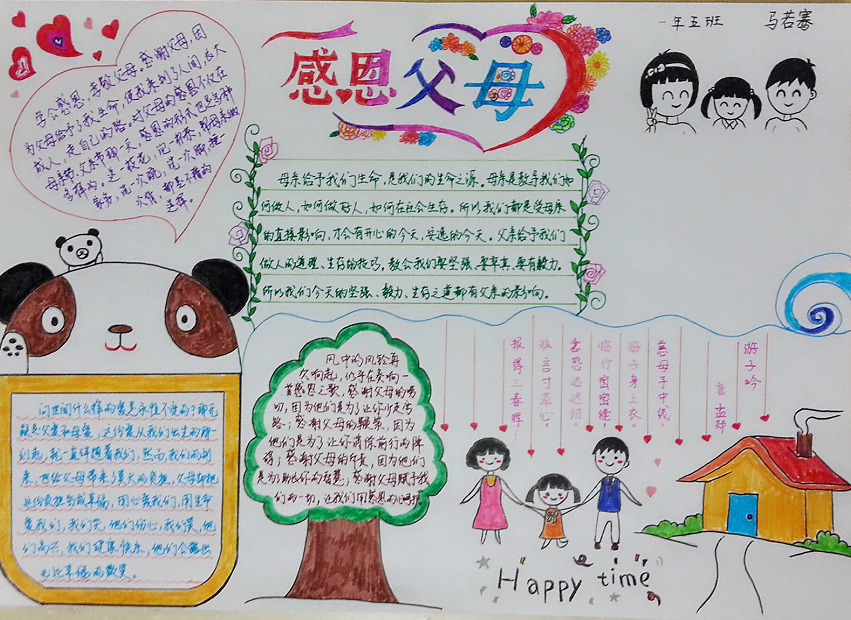 一年五班 马若骞
感恩父母
学会感恩，孝敬父母。感谢父母，因
为父母给予了我生命，使我来到了人间，放大
成人，走自己的路。对父母的感恩不仅在
母亲节、父亲节那一天，感恩的形式也是多种
多样的。送一枝花，记一
家务，洗一次碗，洗一次脚，捶
次背，都是不错的
选择。
母亲给予我们生命，是我们的生命之源。母亲是教导我们如
何做人，如何做好人，如何在社会生存。所以我们都是受母亲
的直接影响，才会有开心的今天，安逸的今天。父亲给予我们
做人的道理、生存的技巧，教会我们要坚强、要率真、要有毅力。
所以我们今天的坚强、毅力、生存之道都有父亲的影响。
问世间什么样的爱是永恒不变的？那无
疑是父爱和母爱，这份爱从我们出生的那一
刻起，就一直伴随着我们，然而，我们的到
来，也给父母带来了莫大的负担，父母却把
这份负担当成幸福，用心爱我们，用生命
爱我们，我们哭，他们伤心，我们笑，他
们高兴，我们健康快乐，他们会露出
无比幸福的微笑。
风中的风铃再
次响起，似乎在奏响一
首感恩之歌，感谢父母的唠
叨，因为他们是为了让你少走弯
路；感谢父母的鞭策，因为
他们是为了让你清除前行的障
碍；感谢父母的斥责，因为他们
是为了助长你的智慧；感谢父母赋予我
们的一切，让我们用感恩的心
游子吟
唐 孟郊
慈母手中线，
游子身上衣。
临行密密缝，
意恐迟迟归。
谁言寸草心，
报得三春晖！
Happy time